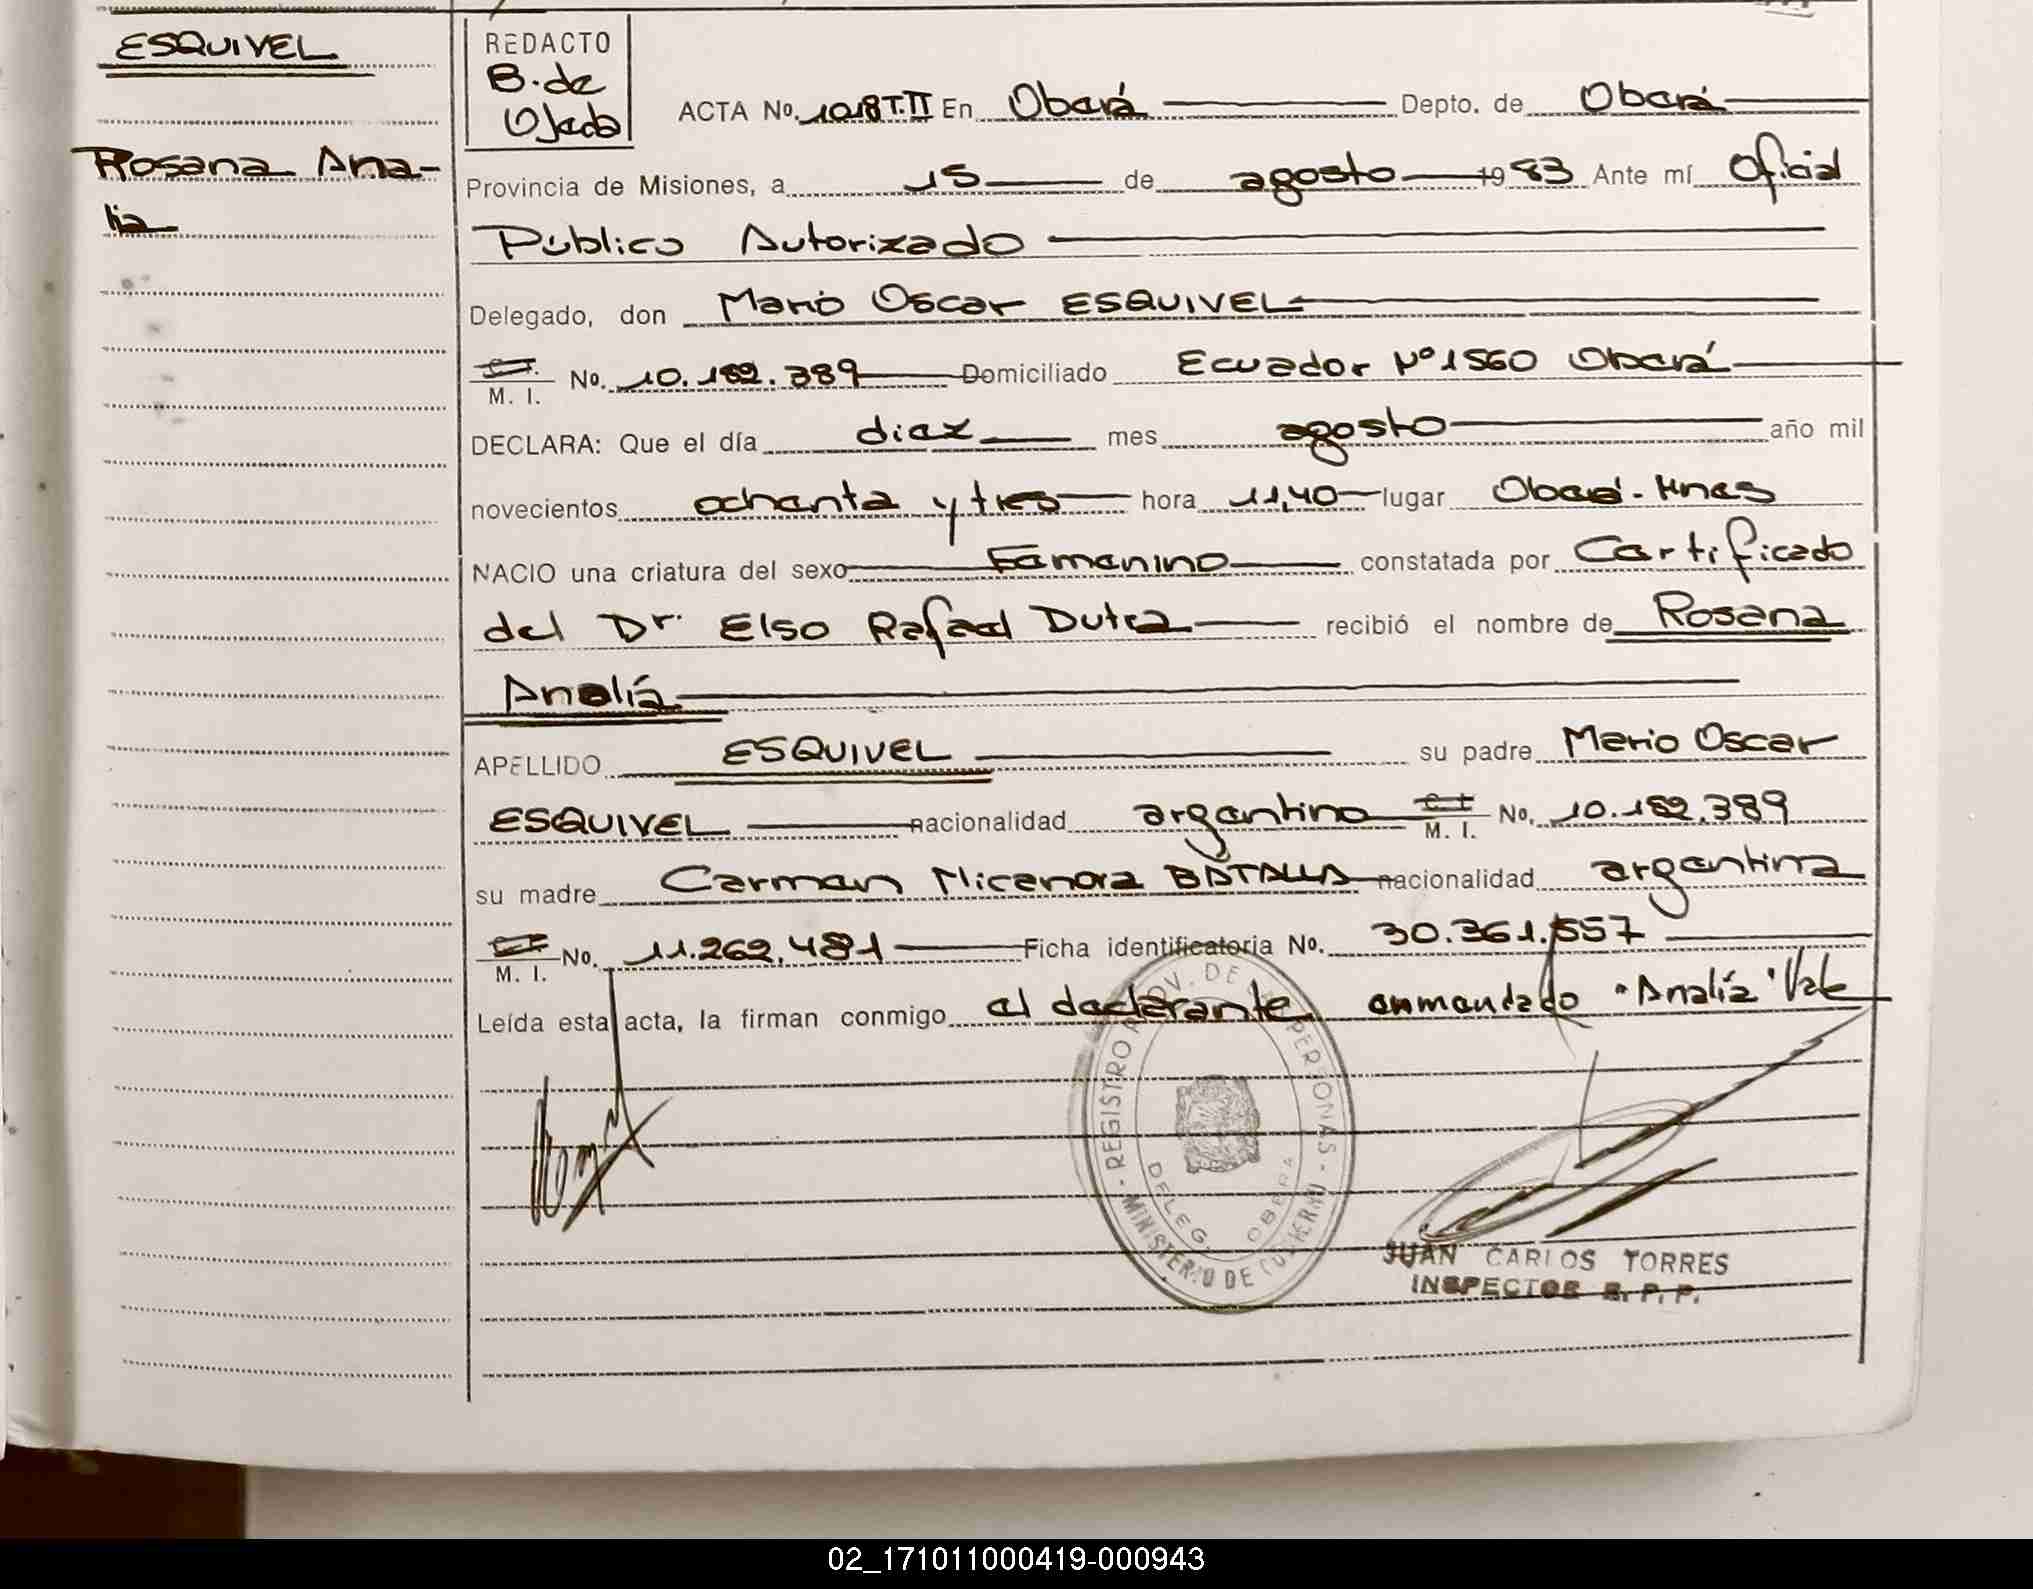 ESQUIVEL
Rosana Ana-
lia
REDACTO
B. de
Ojeda
ACTA No. 1018 T.II En Oberá Depto. de Oberá
Provincia de Misiones, a 15 de agosto 1983 Ante mí Oficial
Público Autorizado
Delegado, don Mario Oscar ESQUIVEL
M. I. No. 10.182.389 Domiciliado Ecuador Nº 1560 Oberá
DECLARA: Que el día diez mes agosto año mil
novecientos ochenta y tres hora 11,40 lugar Oberá - Mnes
NACIO una criatura del sexo Femenino constatada por Certificado
del Dr. Elso Rafael Dutra recibió el nombre de Rosana
Analía
APELLIDO ESQUIVEL su padre Mario Oscar
ESQUIVEL nacionalidad argentino M. I. No. 10.182.389
su madre Carmen Nicanora BATALLA nacionalidad argentina
M. I. No. 11.262.481 Ficha identificatoria No. 30.361.557
Leída esta acta, la firman conmigo el declarante enmendado "Analía" Vale
REGISTRO PROV. DE LAS PERSONAS - MINISTERIO DE GOBIERNO -
DELEG. OBERA
JUAN CARLOS TORRES
INSPECTOR R. P. P.
02_171011000419-000943